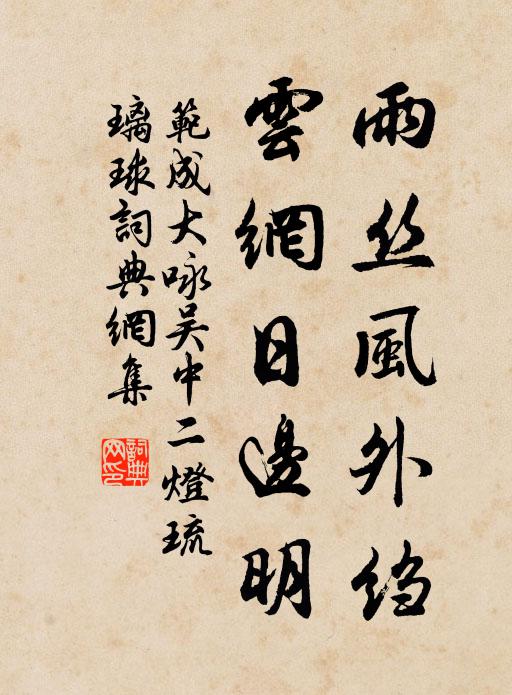 雨丝風外绉
雲網日邊明
範成大咏吴中二燈琉
璃球詞典網集
詞典
网印